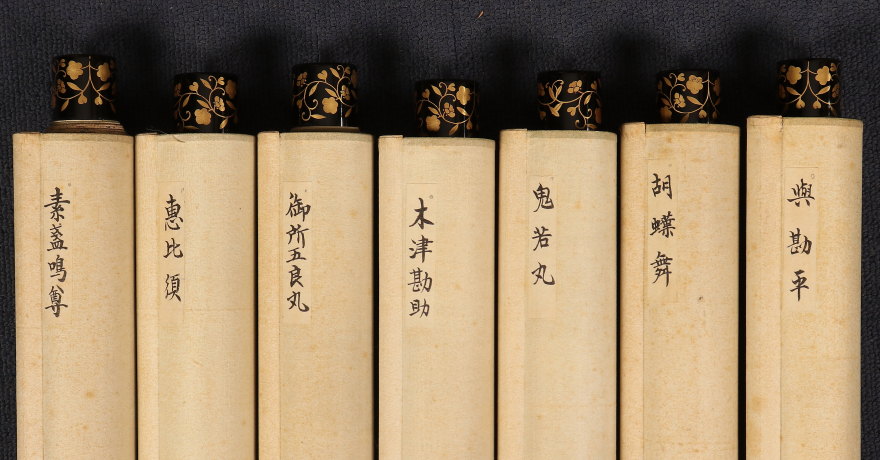 與勘平
胡蝶舞
鬼若丸
木津勘助
御所五良丸
恵比須
素盞鳴尊